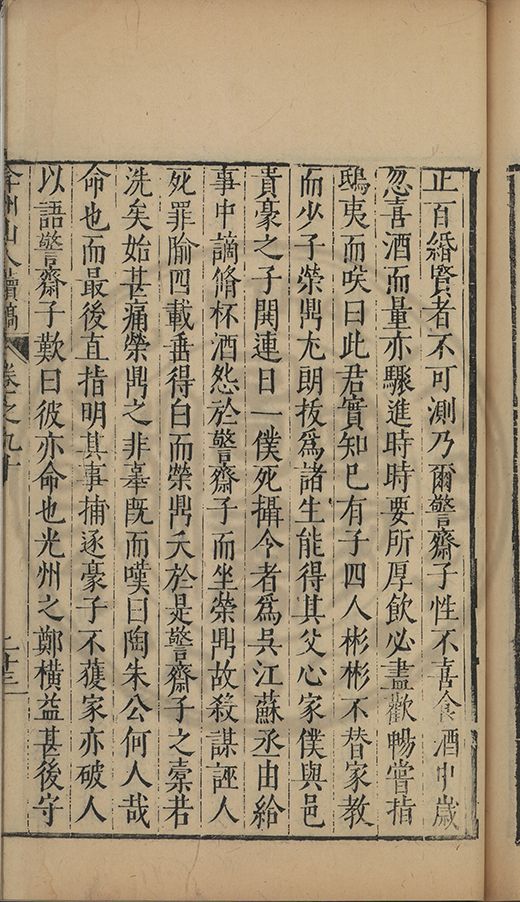 止百緡賢者不可測乃爾警齋子性不喜食酒中歲
忽喜酒而量亦驟進時時要所厚飲必盡歡暢嘗指
鴟夷而唉曰此君實知巳有子四人彬彬不替家教
而少子榮鼎尤朗拔爲諸生能得其父心家僕與邑
貴豪之子閧連日一僕死攝令者爲吳江蘇丞由給
事中謫脩杯酒怨於警齋子而坐榮鼎故殺謀誣人
死罪隃四載垂得白而榮鼎夭於是警齋子之槖若
洗矣始甚痛榮鼎之非辜旣而嘆曰陶朱公何人哉
命也而最後直指明其事捕逐豪子不獲家亦破人
以語警齋子歎曰彼亦命也光州之鄭橫益甚後守
弇州山人續稿 卷之九十